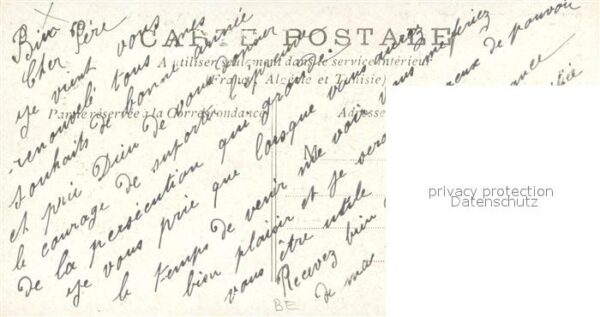 CARTE POSTALE
A utiliser seulement dans le service intérieur
(France, Algérie et Tunisie)
Partie réservée à la Correspondance
Adresse
Bien
Cher Père
Je vient vous
renouvelé tous mes
souhaits de bonne année
et prié Dieu de vous donner
le courage de suporté l'épreuve
de la persécution qui gronde.
Je vous prie que lorsque vous aurez
le temps de venir me voir vous me feriez
bien plaisir et je serai heureux de pouvoir
vous être utile
Recevez bien
de ma
BE
privacy protection
Datenschutz